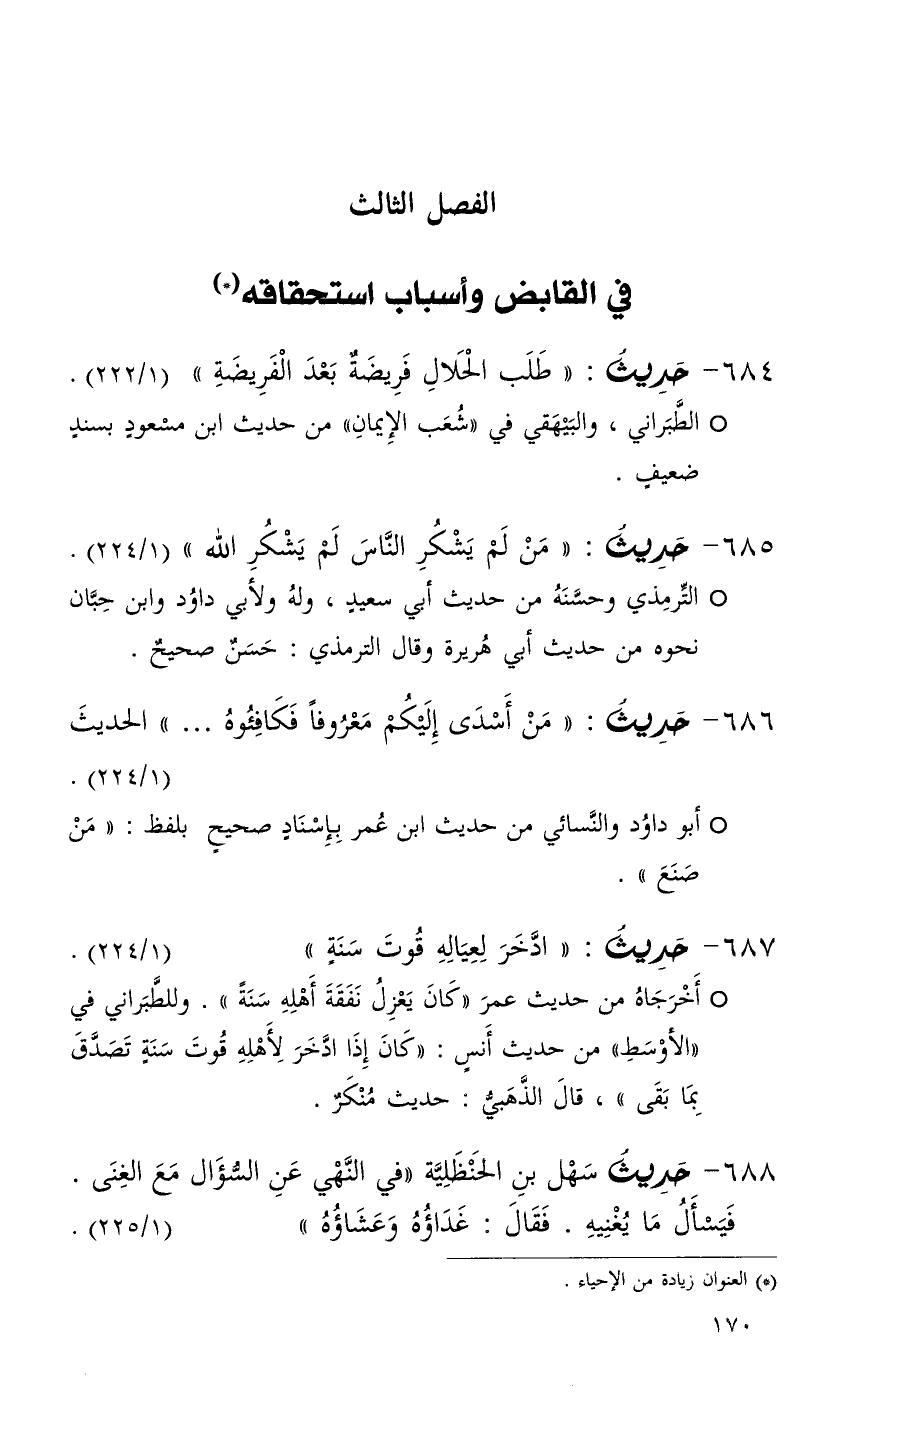 الفصل الثالث
في القابض وأسباب استحقاقه(*)
٦٨٤- حَدِيثُ : « طَلَب الْحَلالِ فَرِيضَةٌ بَعْدَ الْفَرِيضَةِ » (٢٢٢/١) .
○ الطَّبَراني ، والبَيْهَقي في «شُعَب الإِيمانِ» من حديث ابن مسْعودٍ بسندٍ
ضعيفٍ .
٦٨٥- حَدِيثُ : « مَنْ لَمْ يَشْكُرِ النَّاسَ لَمْ يَشْكُرِ الله » (٢٢٤/١) .
○ التِّرمِذي وحسَّنَهُ من حديث أبي سعيدٍ ، ولهُ ولأبي داوُد وابن حِبَّان
نحوه من حديث أبي هُريرة وقال الترمذي : حَسَنٌ صحيحٌ .
٦٨٦- حَدِيثُ : « مَنْ أَسْدَى إِلَيْكُمْ مَعْرُوفاً فَكَافِئُوهُ ... » الحديثَ
(٢٢٤/١) .
○ أبو داوُد والنَّسائي من حديث ابن عُمر بِإِسْنَادٍ صحيحٍ بلفظ : « مَنْ
صَنَعَ » .
٦٨٧- حَدِيثُ : « ادَّخَرَ لِعِيَالِهِ قُوتَ سَنَةٍ » (٢٢٤/١) .
○ أَخْرَجَاهُ من حديث عمرَ «كَانَ يَعْزِلُ نَفَقَةَ أَهْلِهِ سَنَةً» . وللطَّبَراني في
«الأوْسَطِ» من حديث أَنسٍ : «كَانَ إِذَا ادَّخَرَ لِأَهْلِهِ قُوتَ سَنَةٍ تَصَدَّقَ
بِمَا بَقَى » ، قالَ الذَّهَبيُّ : حديث مُنْكَرٌ .
٦٨٨- حَدِيثُ سَهْل بنِ الحَنْظَلِيَّة «في النَّهْي عَنِ السُّؤَال مَعَ الغِنَى .
فَيَسْأَلُ مَا يُغْنِيهِ . فَقَالَ : غَدَاؤُهُ وَعَشَاؤُهُ » (٢٢٥/١) .
(*) العنوان زيادة من الإحياء .
١٧٠